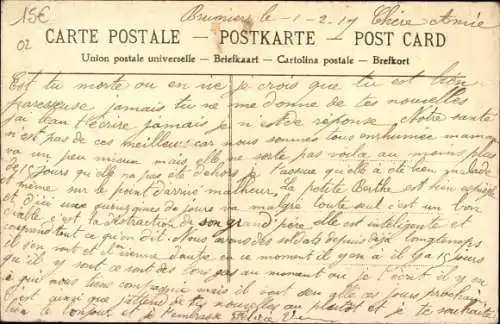 15€
02
Brumiers le -1-2-17 Chère Amie
CARTE POSTALE – POSTKARTE – POST CARD
Union postale universelle – Briefkaart – Cartolina postale – Brefkort
Est tu morte ou en vie je crois que tu est bien
paresseuse jamais tu ne me donne de tes nouvelles
j'ai beau t'écrire jamais je n'est de réponse Notre santé
n'est pas de ces meilleur car nous sommes tous enrhumée maman
va un peu mieux mais elle ne sorte pas voila au moins plus
de 15 jours qu'elle na pas été dehors je t'assure qu'elle a été bien malade
même sur le point d'arrivé malheur la petite Berthe est bien
et d'ici une quinzaine de jours va malgré toute seul c'est un bon
diable c'est la distraction de son grand père elle est intelligente et
comprend tout ce qu'on dit. Nous avons des soldats depuis déjà longtemps
il s'en vont et il vienne d'autre en ce moment il y en a il y a 15 jours
qu'il y sont ce sont des au moment ou je t'écrit il y en
à qui nous tient compagnie mais il vont s'en allé ces jours prochain
c'est ainsi que j'attend de tes nouvelles au plutôt et je te souhaite
bien le bonjour et je t'embrasse